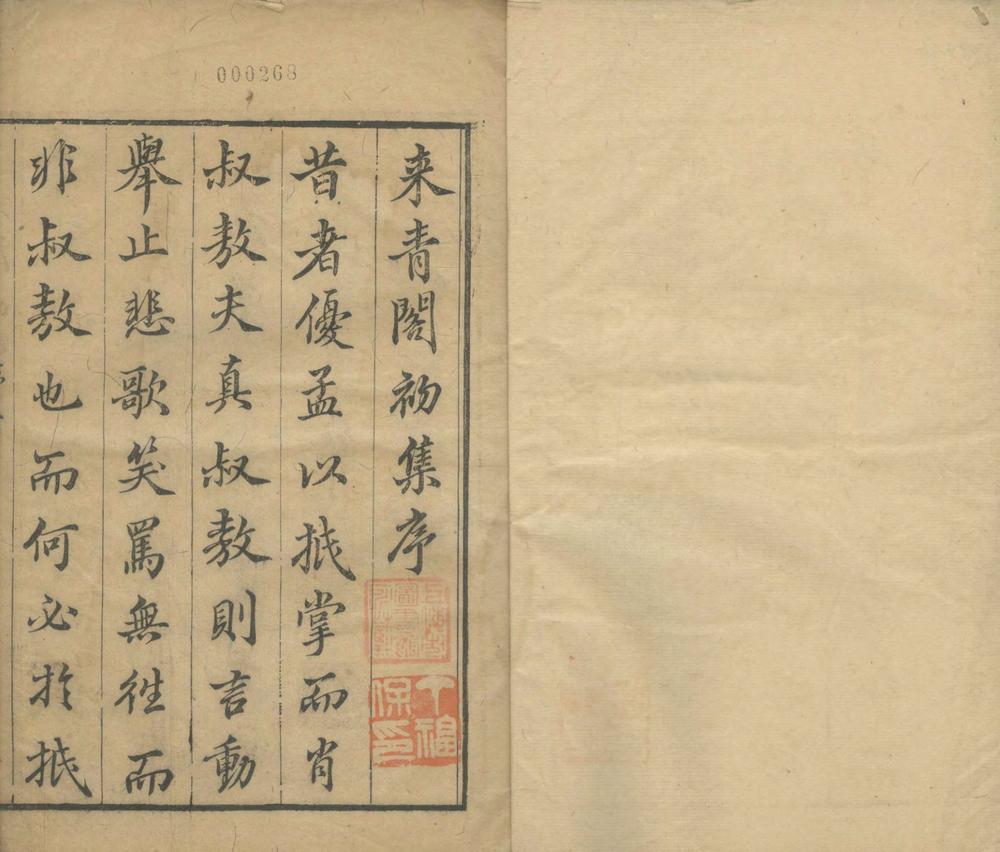 000268
来青閣初集序
昔者優孟以抵掌而肖
叔敖夫真叔敖則言動
舉止悲歌笑罵無徃而
非叔敖也而何必扵抵
丁福
保印